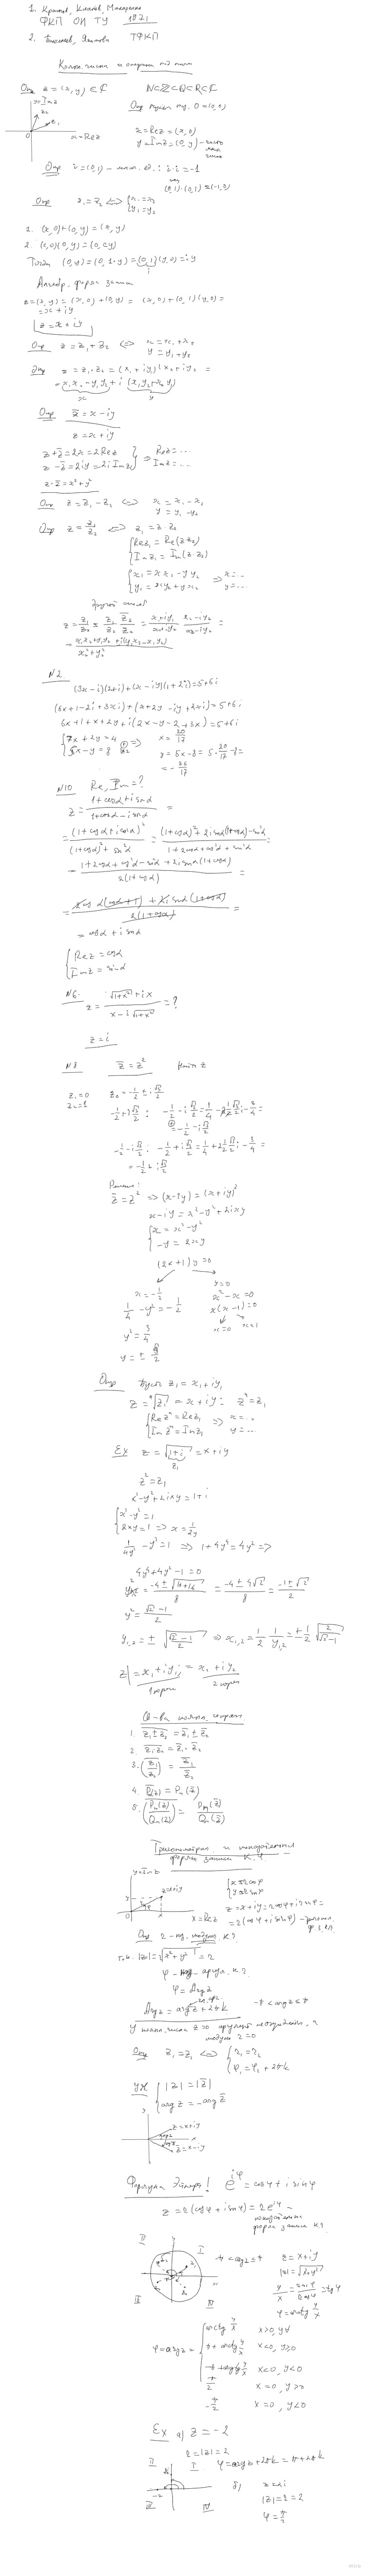 1. Краснов, Киселев, Макаренко
ФКП ОИ ТУ 1971
2. ТФКП
Компл. числа и операции над ними
Опр z = (x, y) ∈ ₵ N⊂Z⊂Q⊂R⊂₵
y = Im z
0 x = Re z
x = Re z = (x, 0)
y = Im z = (0, y)
Опр i = (0,1) – мним. ед.: i·i = -1
(0,1)·(0,1) = (-1,0)
Опр z₁ = z₂ <=> { x₁ = x₂
y₁ = y₂
1. (x,0)+(0,y) = (x,y)
2. (x,0)(0,y) = (0,xy)
Тогда (0,y) = (0,1·y) = (0,1)(y,0) = iy
Алгебр. форма записи
z = (x,y) = (x,0)+(0,y) = (x,0)+(0,1)(y,0) =
= x + iy
z = x + iy
Опр z = z₁ + z₂ <=> x = x₁ + x₂
y = y₁ + y₂
Опр z = z₁·z₂ = (x₁ + iy₁)(x₂ + iy₂) =
= x₁x₂ - y₁y₂ + i(x₁y₂ + x₂y₁)
x y
Опр z̄ = x - iy
z = x + iy
z + z̄ = 2x = 2Re z
z - z̄ = 2iy = 2i Im z } => Re z = ...
Im z = ...
z·z̄ = x² + y²
Опр z = z₁ - z₂ <=> x = x₁ - x₂
y = y₁ - y₂
Опр z = z₁/z₂ <=> z₁ = z·z₂
{ Re z₁ = Re(z·z₂)
Im z₁ = Im(z·z₂)
{ x₁ = x x₂ - y y₂
y₁ = x y₂ + y x₂ => x = ...
y = ...
Другой способ
z = z₁/z₂ = z₁/z₂ · z̄₂/z̄₂ = (x₁+iy₁)/(x₂+iy₂) · (x₂-iy₂)/(x₂-iy₂) =
= (x₁x₂+y₁y₂+i(y₁x₂-x₁y₂))/(x₂²+y₂²)
N2
(3x-i)(2+i)+(x-iy)(1+2i) = 5+6i
(6x+1-2i+3xi)+(x+2y-iy+2xi) = 5+6i
6x+1+x+2y+i(2x-y-2+3x) = 5+6i
{ 7x+2y = 4
5x-y = 8 => x = 20/17
y = 5x-8 = 5·20/17-8 =
= -36/17
N10 Re, Im = ?
z = (1+cosα+i sinα)/(1+cosα-i sinα) =
= (1+cosα+i sinα)²/((1+cosα)²+sin²α) = ((1+cosα)²+2i sinα(1+cosα)-sin²α)/(1+2cosα+cos²α+sin²α) =
= (1+2cosα+cos²α-sin²α+2i sinα(1+cosα))/(2(1+cosα)) =
= (2cosα(cosα+1)+2i sinα(1+cosα))/(2(1+cosα)) =
= cosα + i sinα
{ Re z = cosα
Im z = sinα
N6 z = (√(1+x²)+ix)/(x-i√(1+x²)) = ?
z = i
N8 z̄ = z² Найти z
z₁ = 0
z₂ = 1 z = -1/2 ± i√3/2
-1/2+i√3/2: -1/2-i√3/2 = 1/4-2·1/2·√3/2 i-3/4 =
= -1/2-i√3/2
-1/2-i√3/2: -1/2+i√3/2 = 1/4+2·1/2·√3/2 i-3/4 =
= -1/2+i√3/2
Решение:
z̄ = z² => (x-iy) = (x+iy)²
x-iy = x²-y²+2ixy
{ x = x²-y²
-y = 2xy
(2x+1)y = 0
x = -1/2 y = 0
1/4-y² = -1/2 x²-x = 0
x(x-1) = 0
y² = 3/4 x = 0 x = 1
y = ±√3/2
Опр Пусть z₁ = x₁+iy₁
z = ⁿ√z₁ = x+iy: zⁿ = z₁
{ Re zⁿ = Re z₁
Im zⁿ = Im z₁ => x = ...
y = ...
Ex z = √(1+i) = x+iy
z₁
z² = z₁
x²-y²+2ixy = 1+i
{ x²-y² = 1
2xy = 1 => x = 1/2y
1/4y² - y² = 1 => 1-4y⁴ = 4y² =>
4y⁴+4y²-1 = 0
y² = (-4±√(16+16))/8 = (-4±4√2)/8 = (-1±√2)/2
y² = (√2-1)/2
y₁,₂ = ±√((√2-1)/2) => x₁,₂ = 1/2 · 1/y₁,₂ = ±1/2 √(2/(√2-1))
z = x₁+iy₁; = x₂+iy₂
1 корень 2 корень
Св-ва компл. сопряж
1. z₁±z₂ = z̄₁±z̄₂
2. z₁z₂ = z̄₁·z̄₂
3. (z₁/z₂) = z̄₁/z̄₂
4. Pₙ(z) = Pₙ(z̄)
5. (Pₙ(z)/Qₙ(z)) = Pₙ(z̄)/Qₙ(z̄)
Тригонометрич. и показательная
формы записи К.Ч
y = Im z
z = x+iy
x = Re z
{ x = r cosφ
y = r sinφ
z = x+iy = r cosφ+i r sinφ =
= r(cosφ+i sinφ) –
Опр r – модуль к.ч
|z| = √(x²+y²) = r
φ – аргум. к.ч.
φ = Arg z
Arg z = arg z + 2πk -π < arg z ≤ π
У компл. числа z = 0 аргумент неопределен, а
модуль r = 0
Опр z₁ = z₂ <=> { r₁ = r₂
φ₁ = φ₂+2πk
{ |z| = |z̄|
arg z = -arg z̄
z = x+iy
z̄ = x-iy
Формула Эйлера! e^{iφ} = cosφ+i sinφ
z = r(cosφ+i sinφ) = re^{iφ} –
показательная
форма записи к.ч
II I
III IV
-π < arg z ≤ π z = x+iy
|z| = √(x²+y²)
y/x = r sinφ/r cosφ = tgφ
φ = arctg y/x
φ = arg z = { arctg y/x x>0, y∀
π+arctg y/x x<0, y≥0
-π+arctg y/x x<0, y<0
π/2 x=0, y>0
-π/2 x=0, y<0
Ex а) z = -2
r = |z| = 2
φ = arg z+2πk = π+2πk
II I
-2
IV
б) z = 2i
|z| = r = 2
φ = π/2